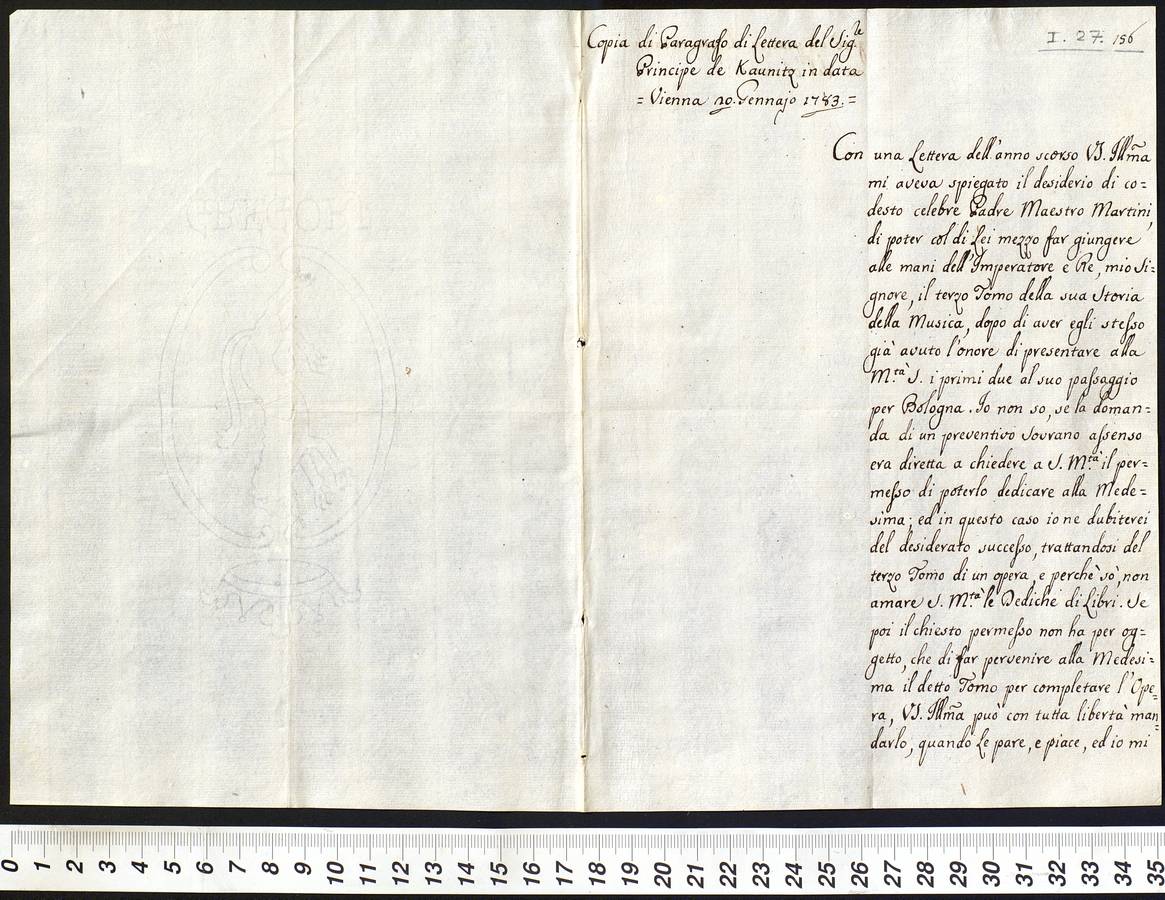 Copia di Paragrafo di Lettera del Sig.le
Principe de Kaunitz in data
= Vienna 20. Gennajo 1783. =
I. 27. 156
Con una Lettera dell'anno scorso VS. Illm̃a
mi aveva spiegato il desiderio di co=
desto celebre Padre Maestro Martini,
di poter col di Lei mezzo far giungere
alle mani dell'Imperatore e Re, mio Si=
gnore, il terzo Tomo della sua Storia
della Musica, dopo di aver egli stesso
già avuto l'onore di presentare alla
M.tà S. i primi due al suo passaggio
per Bologna. Io non so, se la doman=
da di un preventivo Sovrano assenso
era diretta a chiedere a S. M.tà il per=
messo di poterlo dedicare alla Mede=
sima; ed in questo caso io ne dubiterei
del desiderato successo, trattandosi del
terzo Tomo di un opera, e perchè sò, non
amare S. M.tà le Dediche di Libri. Se
poi il chiesto permesso non ha per og=
getto, che di far pervenire alla Medesi=
ma il detto Tomo per completare l'Ope=
ra, VS. Illm̃a può con tutta libertà man=
darlo, quando Le pare, e piace, ed io mi
0 1 2 3 4 5 6 7 8 9 10 11 12 13 14 15 16 17 18 19 20 21 22 23 24 25 26 27 28 29 30 31 32 33 34 35